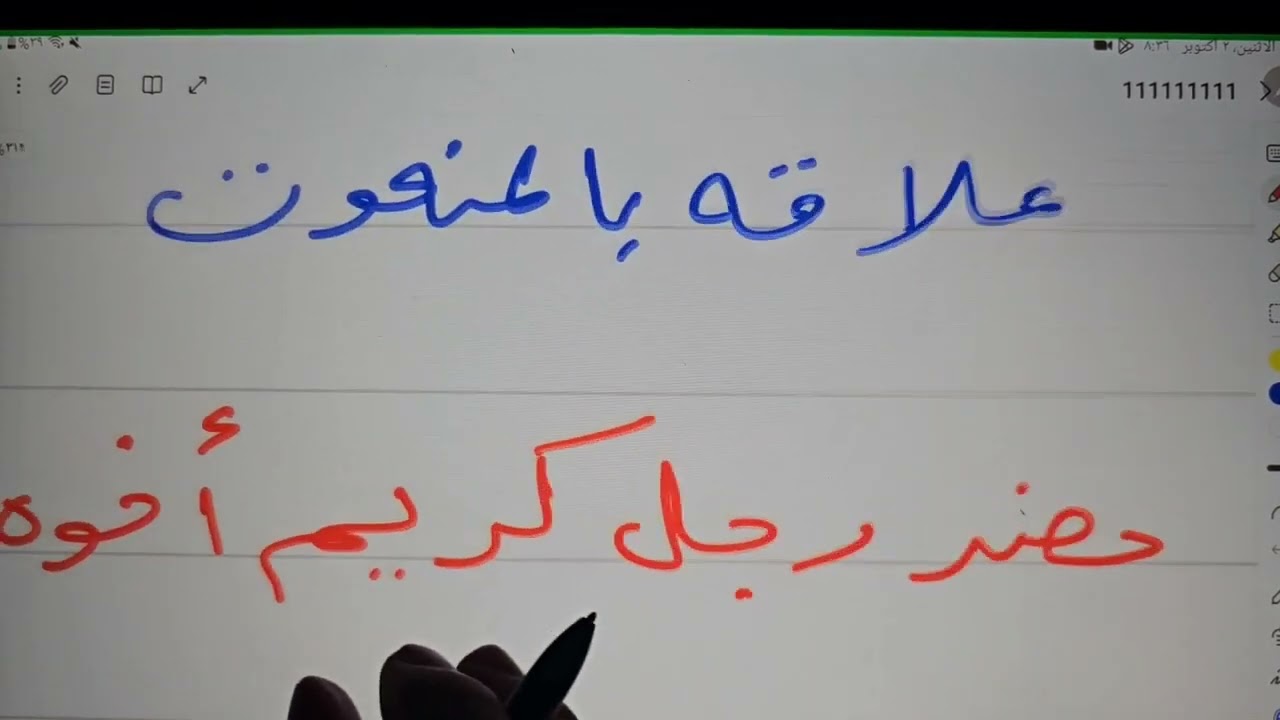 الاثنين، ٢ أكتوبر ٨:٣٦
٪٢٩
111111111
٪٣١٩
علاقه بالمنعوت
حضر رجل كريم أخوه